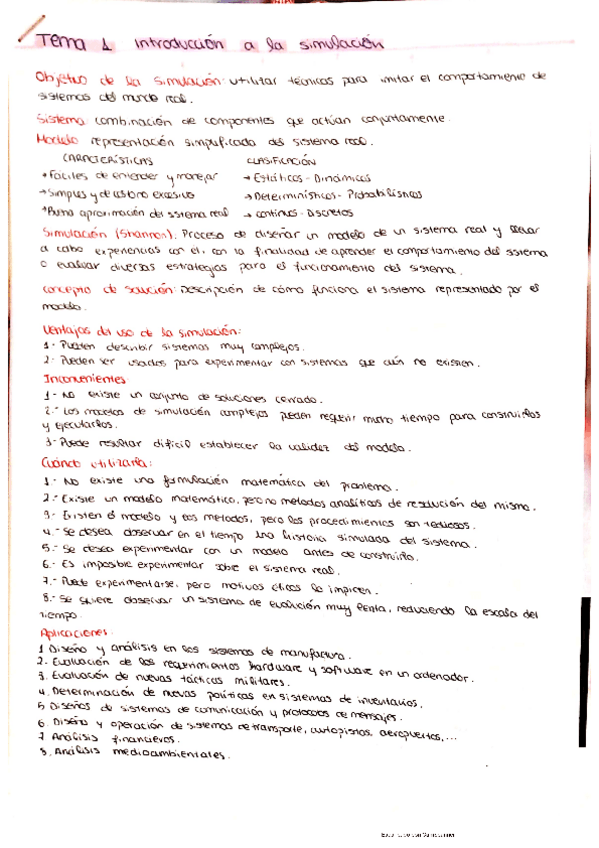 Tema 1 introducción a la simulación
Objetivo de la simulación: utilizar técnicas para imitar el comportamiento de
sistemas del mundo real.
Sistema: combinación de componentes que actúan conjuntamente.
Modelo: representación simplificada del sistema real.
CARACTERÍSTICAS CLASIFICACIÓN
→ Fáciles de entender y manejar → Estáticos - Dinámicos
→ Simples y de costo no excesivo → Determinísticos - Probabilísticos
→ Buena aproximación del sistema real → continuos - Discretos
Simulación (Shannon): Proceso de diseñar un modelo de un sistema real y llevar
a cabo experiencias con él, con la finalidad de aprender el comportamiento del sistema
o evaluar diversas estrategias para el funcionamiento del sistema.
concepto de solución: Descripción de cómo funciona el sistema representado por el
modelo.
Ventajas del uso de la simulación:
1.- Pueden describir sistemas muy complejos.
2.- Pueden ser usados para experimentar con sistemas que aún no existen.
Inconvenientes
1.- No existe un conjunto de soluciones cerrado.
2.- Los modelos de simulación complejos pueden requerir mucho tiempo para construirlos
y ejecutarlos.
3.- Puede resultar difícil establecer la validez del modelo.
Cuándo utilizarla:
1.- No existe una formulación matemática del problema.
2.- Existe un modelo matemático, pero no métodos analíticos de resolución del mismo.
3.- Existen el modelo y los métodos, pero los procedimientos son tediosos.
4.- Se desea observar en el tiempo una historia simulada del sistema.
5.- Se desea experimentar con un modelo antes de construirlo.
6.- Es imposible experimentar sobre el sistema real.
7.- Puede experimentarse, pero motivos éticos lo impiden.
8.- Se quiere observar un sistema de evolución muy lenta, reduciendo la escala del
tiempo.
Aplicaciones:
1. Diseño y análisis en los sistemas de manufactura.
2. Evaluación de los requerimientos hardware y software en un ordenador.
3. Evaluación de nuevas tácticas militares.
4. Determinación de nuevas políticas en sistemas de inventarios.
5. Diseños de sistemas de comunicación y protocolos de mensajes.
6. Diseño y operación de sistemas de transporte, autopistas, aeropuertos,...
7. Análisis financieros.
8. Análisis medioambientales.
Escaneado con CamScanner